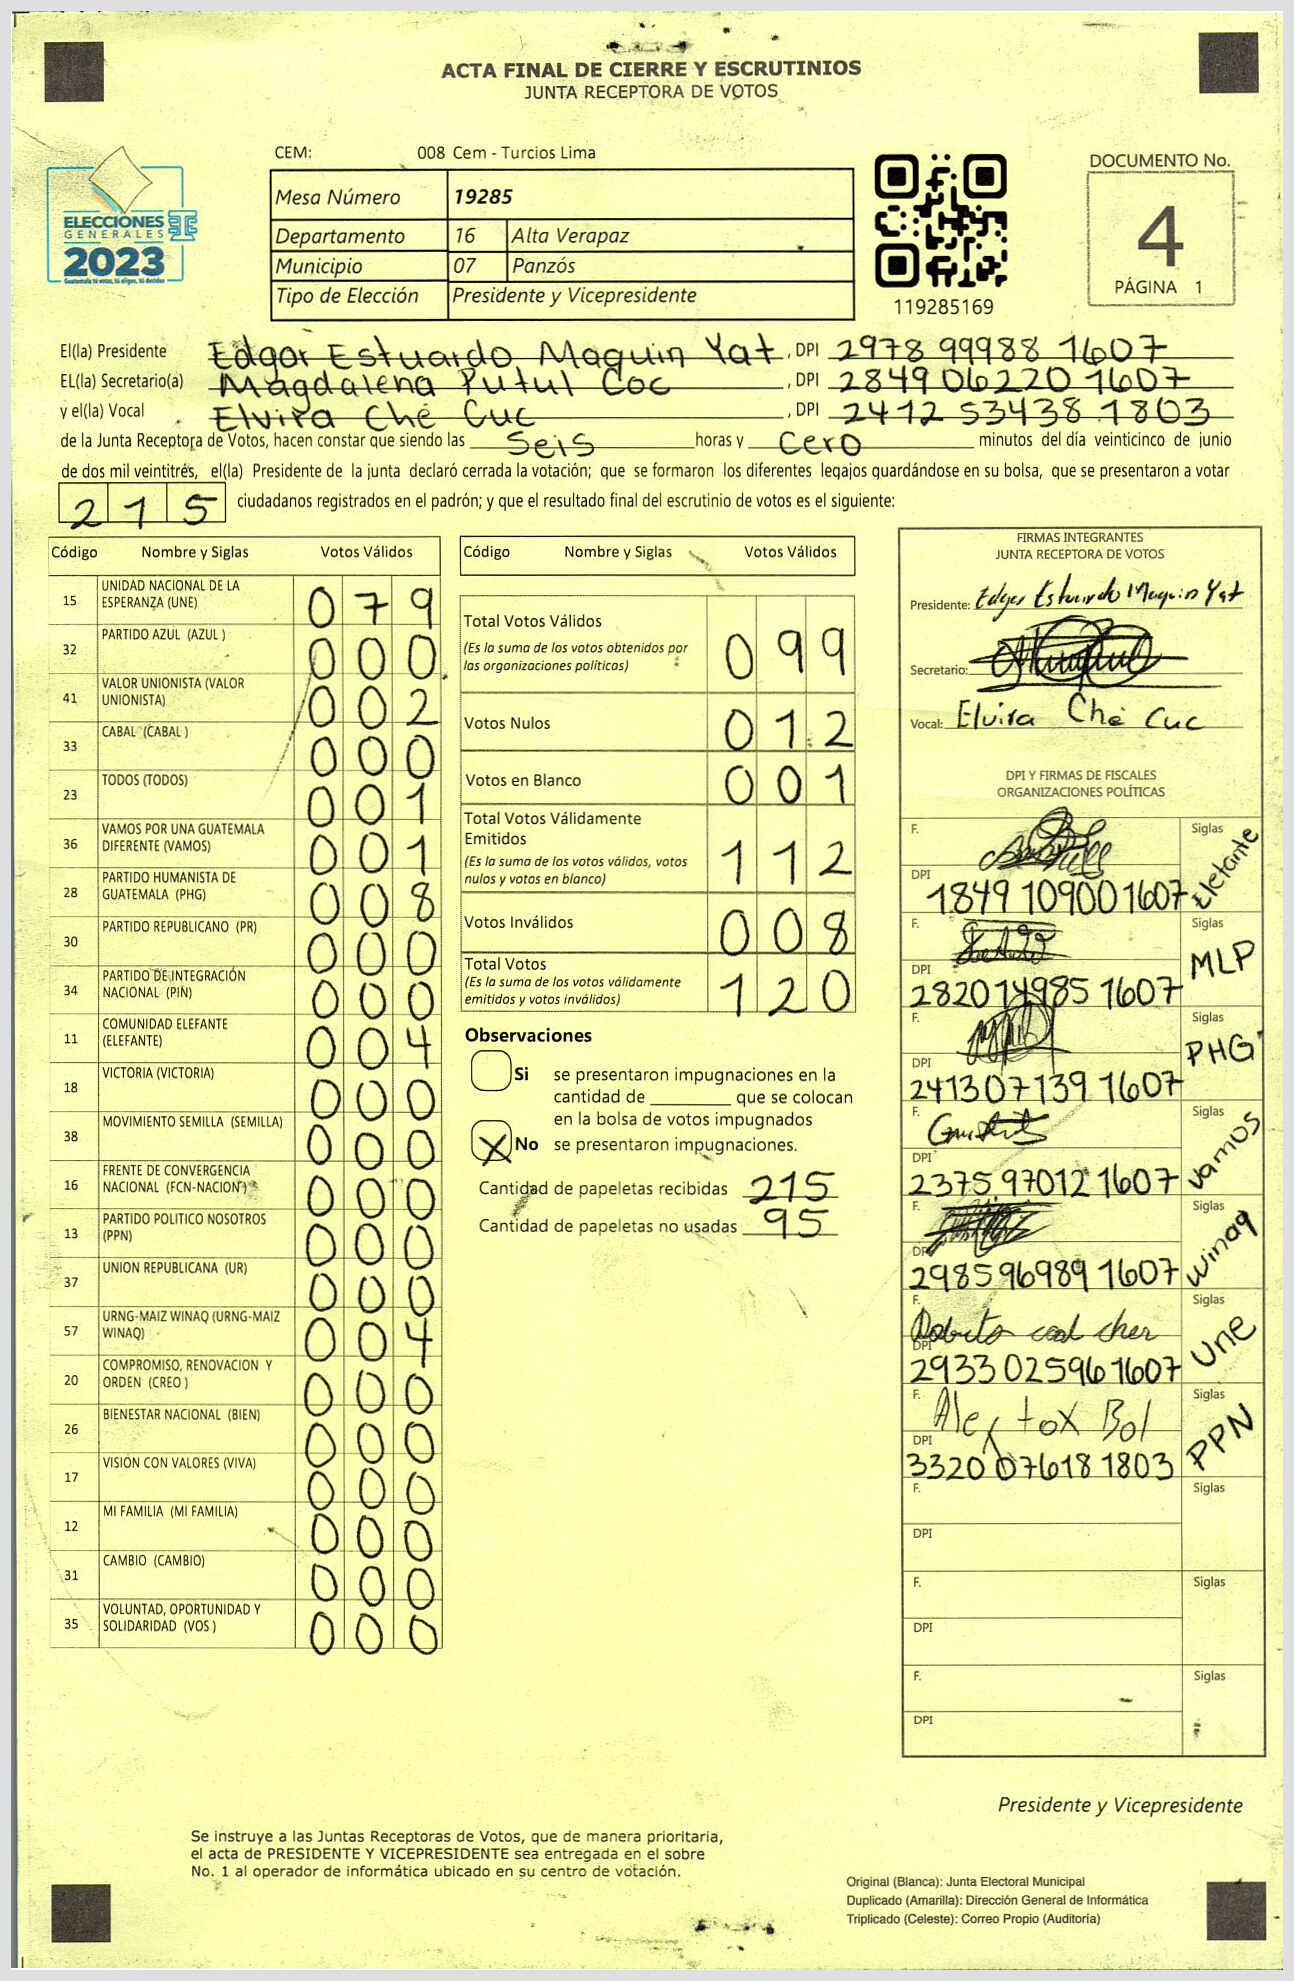 ACTA FINAL DE CIERRE Y ESCRUTINIOS
JUNTA RECEPTORA DE VOTOS
ELECCIONES
GENERALES
2023
Guatemala tú votas, tú eliges, tú decides
CEM: 008 Cem - Turcios Lima
Mesa Número 19285
Departamento 16 Alta Verapaz
Municipio 07 Panzós
Tipo de Elección Presidente y Vicepresidente
119285169
DOCUMENTO No.
4
PÁGINA 1
El(la) Presidente Edgar Estuardo Maquin Yat, DPI 2978 99988 1607
EL(la) Secretario(a) Magdalena Putul Coc, DPI 2849 06220 1607
y el(la) Vocal Elvira Ché Cuc, DPI 2412 53438 1803
de la Junta Receptora de Votos, hacen constar que siendo las seis horas y cero minutos del día veinticinco de junio
de dos mil veintitrés, el(la) Presidente de la junta declaró cerrada la votación; que se formaron los diferentes legajos guardándose en su bolsa, que se presentaron a votar
215 ciudadanos registrados en el padrón; y que el resultado final del escrutinio de votos es el siguiente:
Código Nombre y Siglas Votos Válidos
15 UNIDAD NACIONAL DE LA ESPERANZA (UNE) 079
32 PARTIDO AZUL (AZUL ) 000
41 VALOR UNIONISTA (VALOR UNIONISTA) 002
33 CABAL (CABAL ) 000
23 TODOS (TODOS) 001
36 VAMOS POR UNA GUATEMALA DIFERENTE (VAMOS) 001
28 PARTIDO HUMANISTA DE GUATEMALA (PHG) 008
30 PARTIDO REPUBLICANO (PR) 000
34 PARTIDO DE INTEGRACIÓN NACIONAL (PIN) 000
11 COMUNIDAD ELEFANTE (ELEFANTE) 004
18 VICTORIA (VICTORIA) 000
38 MOVIMIENTO SEMILLA (SEMILLA) 000
16 FRENTE DE CONVERGENCIA NACIONAL (FCN-NACION) 000
13 PARTIDO POLITICO NOSOTROS (PPN) 000
37 UNION REPUBLICANA (UR) 000
57 URNG-MAIZ WINAQ (URNG-MAIZ WINAQ) 004
20 COMPROMISO, RENOVACION Y ORDEN (CREO ) 000
26 BIENESTAR NACIONAL (BIEN) 000
17 VISION CON VALORES (VIVA) 000
12 MI FAMILIA (MI FAMILIA) 000
31 CAMBIO (CAMBIO) 000
35 VOLUNTAD, OPORTUNIDAD Y SOLIDARIDAD (VOS ) 000
Código Nombre y Siglas Votos Válidos
Total Votos Válidos 099
(Es la suma de los votos obtenidos por
las organizaciones políticas)
Votos Nulos 012
Votos en Blanco 001
Total Votos Válidamente
Emitidos 112
(Es la suma de los votos válidos, votos
nulos y votos en blanco)
Votos Inválidos 008
Total Votos 120
(Es la suma de los votos válidamente
emitidos y votos inválidos)
Observaciones
Si se presentaron impugnaciones en la
cantidad de ________ que se colocan
en la bolsa de votos impugnados
X No se presentaron impugnaciones.
Cantidad de papeletas recibidas 215
Cantidad de papeletas no usadas 95
FIRMAS INTEGRANTES
JUNTA RECEPTORA DE VOTOS
Presidente: Edgar Estuardo Maquin Yat
Secretario:
Vocal: Elvira Ché Cuc
DPI Y FIRMAS DE FISCALES
ORGANIZACIONES POLÍTICAS
F. Siglas Elefante
DPI 1849 10900 1607
F. Siglas MLP
DPI 2820 14985 1607
F. Siglas PHG
DPI 2413 07139 1607
F. Siglas Vamos
DPI 2375 97012 1607
F. Siglas Winaq
DPI 2985 96989 1607
F. Siglas Une
DPI 2933 02596 1607
F. Alex tox Bol Siglas PPN
DPI 3320 07618 1803
F. Siglas
DPI
F. Siglas
DPI
F. Siglas
DPI
Presidente y Vicepresidente
Se instruye a las Juntas Receptoras de Votos, que de manera prioritaria,
el acta de PRESIDENTE Y VICEPRESIDENTE sea entregada en el sobre
No. 1 al operador de informática ubicado en su centro de votación.
Original (Blanca): Junta Electoral Municipal
Duplicado (Amarilla): Dirección General de Informática
Triplicado (Celeste): Correo Propio (Auditoría)